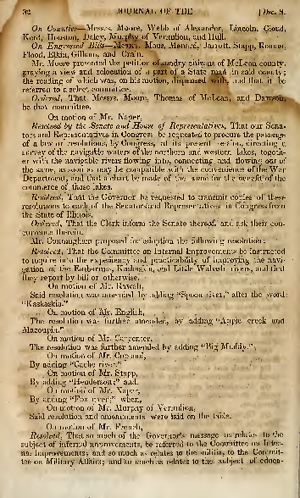 32 JOURNAL OF THE [Dec. 8.
On Counties—Messrs. Moore, Webb of Alexander, Lincoln, Goud,
Kent, Houston, Daley, Murphy of Vermilion, and Hull.
On Engrossed Bills—Messrs. Moore, Menard, Jarrott, Stapp,
Flood, Elkin, Gillham, and Crain.
Mr. Moore presented the petition of sundry citizens of McLean county,
praying a view and relocation of a part of a State road in said county;
the reading of which was, on his motion, dispensed with, and that it be
referred to a select committee.
Ordered, That Messrs. Moore, Thomas, of McLean, and Dawson,
be that committee.
On motion of Mr. Naper,
Resolved by the Senate and House of Representatives, That our Sena-
tors and Representatives in Congress be requested to procure the passage
of a law or resolutions, by Congress, at its present session, directing a
survey of the navigable waters of the northern and western Lakes, togeth-
er with the navigable rivers flowing into, connecting and flowing out of
the same, as soon as may be compatible with the convenience of the War
Department, and that a chart be made of the same for the benefit of the
commerce of those lakes.
Resolved, That the Governor be requested to transmit copies of these
resolutions to each of the Senators and Representatives in Congress from
the State of Illinois.
Ordered, That the Clerk inform the Senate thereof, and ask their con-
currence therein.
Mr. Cunningham proposed for adoption the following resolution:
Resolved, That the Committee on Internal Improvements be instructed
to inquire into the expediency and practicability of improving the navi-
gation of the Embarrass, Kaskaskia, and Little Wabash rivers, and that
they report by bill or otherwise.
On motion of Mr. Rawalt,
Said resolution was amended by adding "Spoon river," after the word
"Kaskaskia."
On motion of Mr. English,
The resolution was further amended, by adding "Apple creek and
Macoupin."
On motion of Mr. Carpenter,
The resolution was further amended by adding "Big Muddy."
On motion of Mr. Copland,
By adding "Cache river."
On motion of Mr. Stapp,
By adding "Henderson;" and
On motion of Mr. Naper,
By adding "Fox river;" when,
On motion of Mr. Murphy of Vermilion,
Said resolution and amendments were laid on the table.
On motion of Mr. French,
Resolved, That so much of the Governor's message as relates to the
subject of internal improvements, be referred to the Committee on Inter-
nal Improvements; and so much as relates to the militia, to the Commit-
tee on Military Affairs; and so much as relates to the subject of educa-